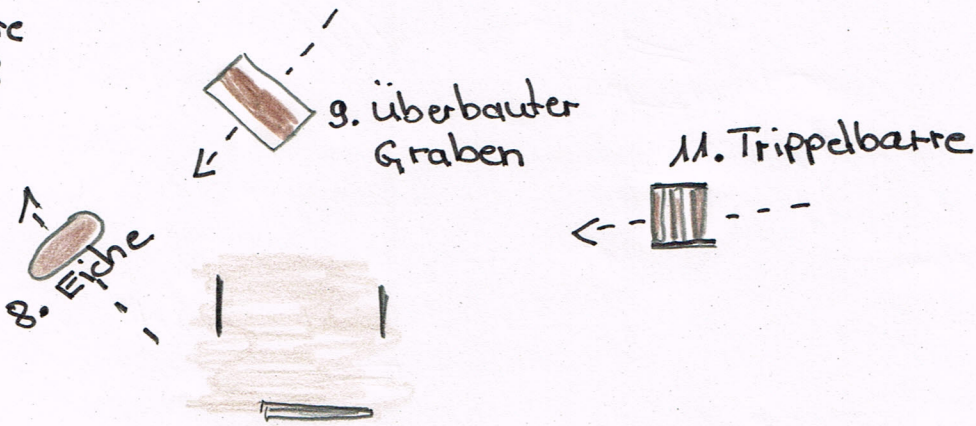 re
9. überbauter
Graben
11. Trippelbarre
8. Eiche